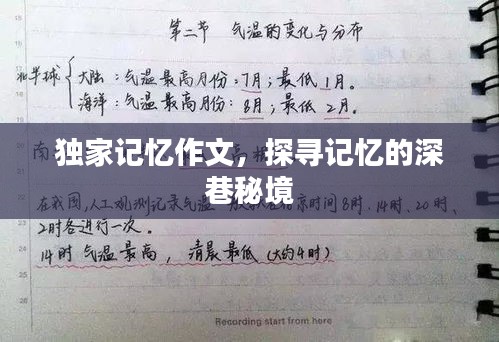 第二节 气温的变化与分布
北半球{大陆:气温最高月份:7月;最低1月。
海洋:气温最高月份:8月;最低2月。
独家记忆作文,探寻记忆的深
巷秘境
在我国,人工观测记录气温一般在北京时间8时、14时、20时、
2时各进行一次。
14时气温最高,清晨最低(大约4时)
Recording start from here